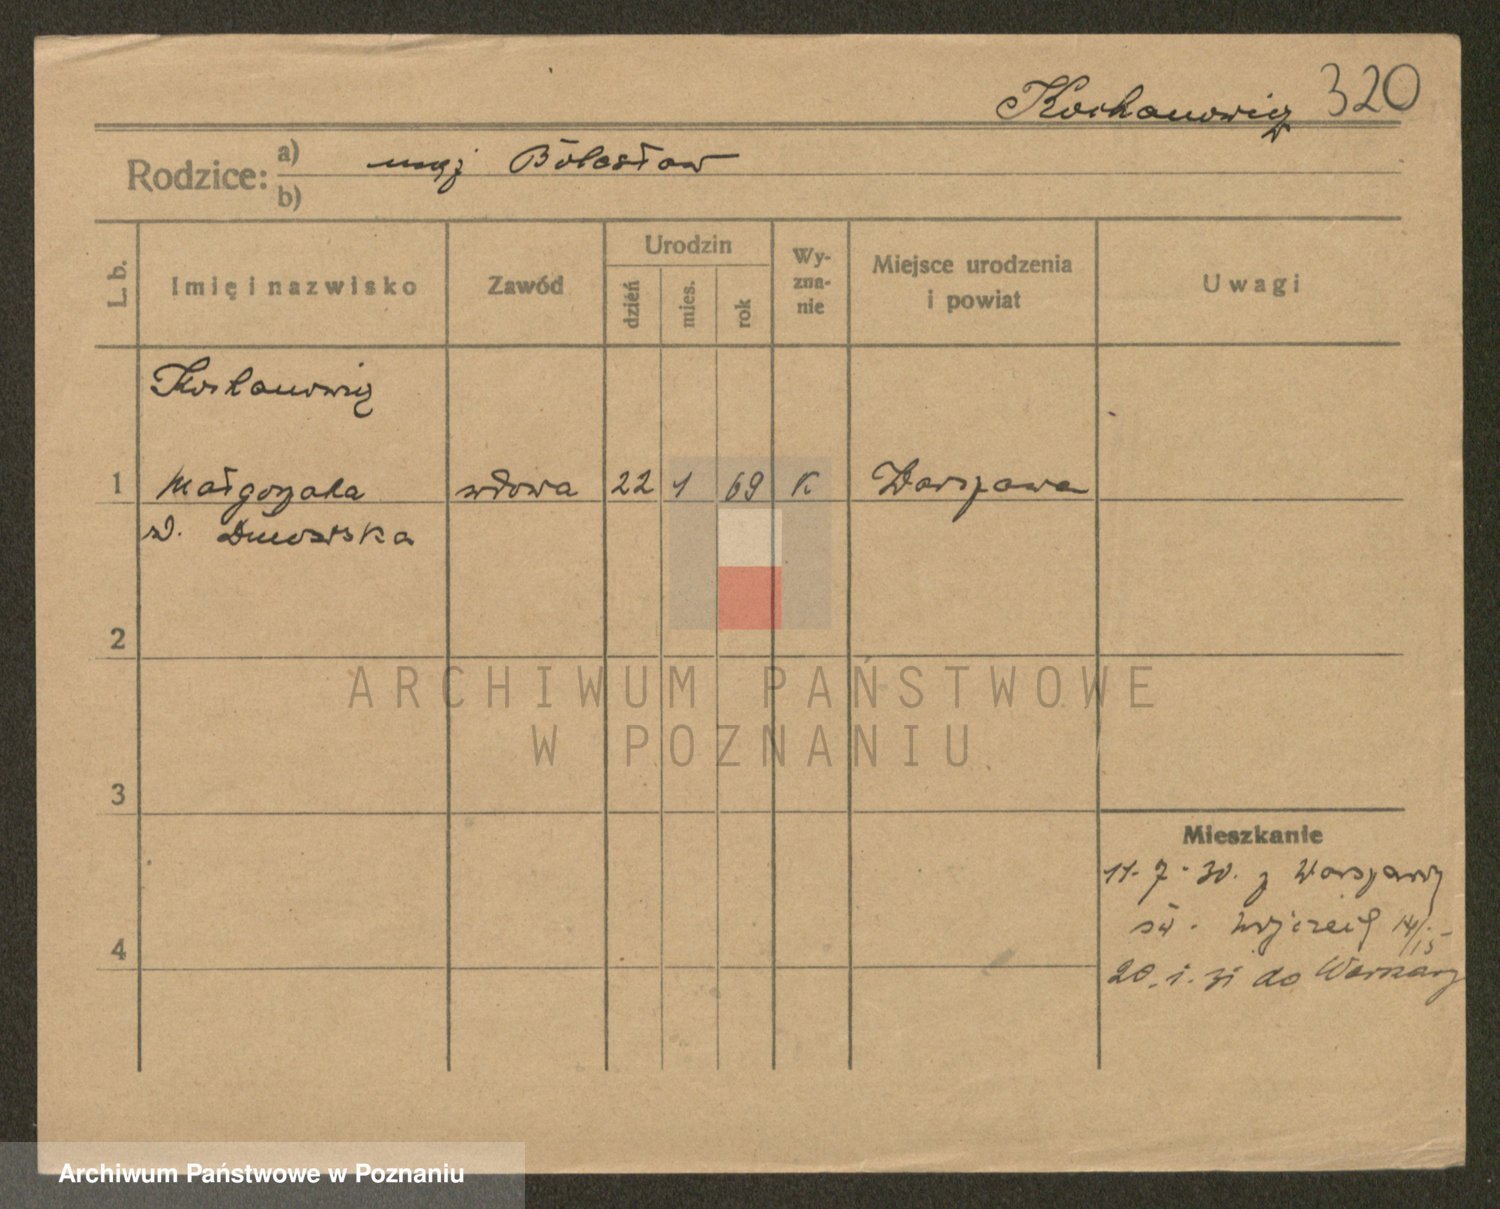 Kochanowicz 320
Rodzice: a) mąż Bolesław
b)
L. b.
Imię i nazwisko
Zawód
Urodzin
dzień
mies.
rok
Wy-
zna-
nie
Miejsce urodzenia
i powiat
Uwagi
Kochanowicz
1 Małgorzata wdowa 22 1 69 K Warszawa
2
3
4
Mieszkanie
11.7.30. z Warszawy
św. Wojciech 14/15
20.1.31 do Warszawy
ARCHIWUM PAŃSTWOWE
W POZNANIU
Archiwum Państwowe w Poznaniu